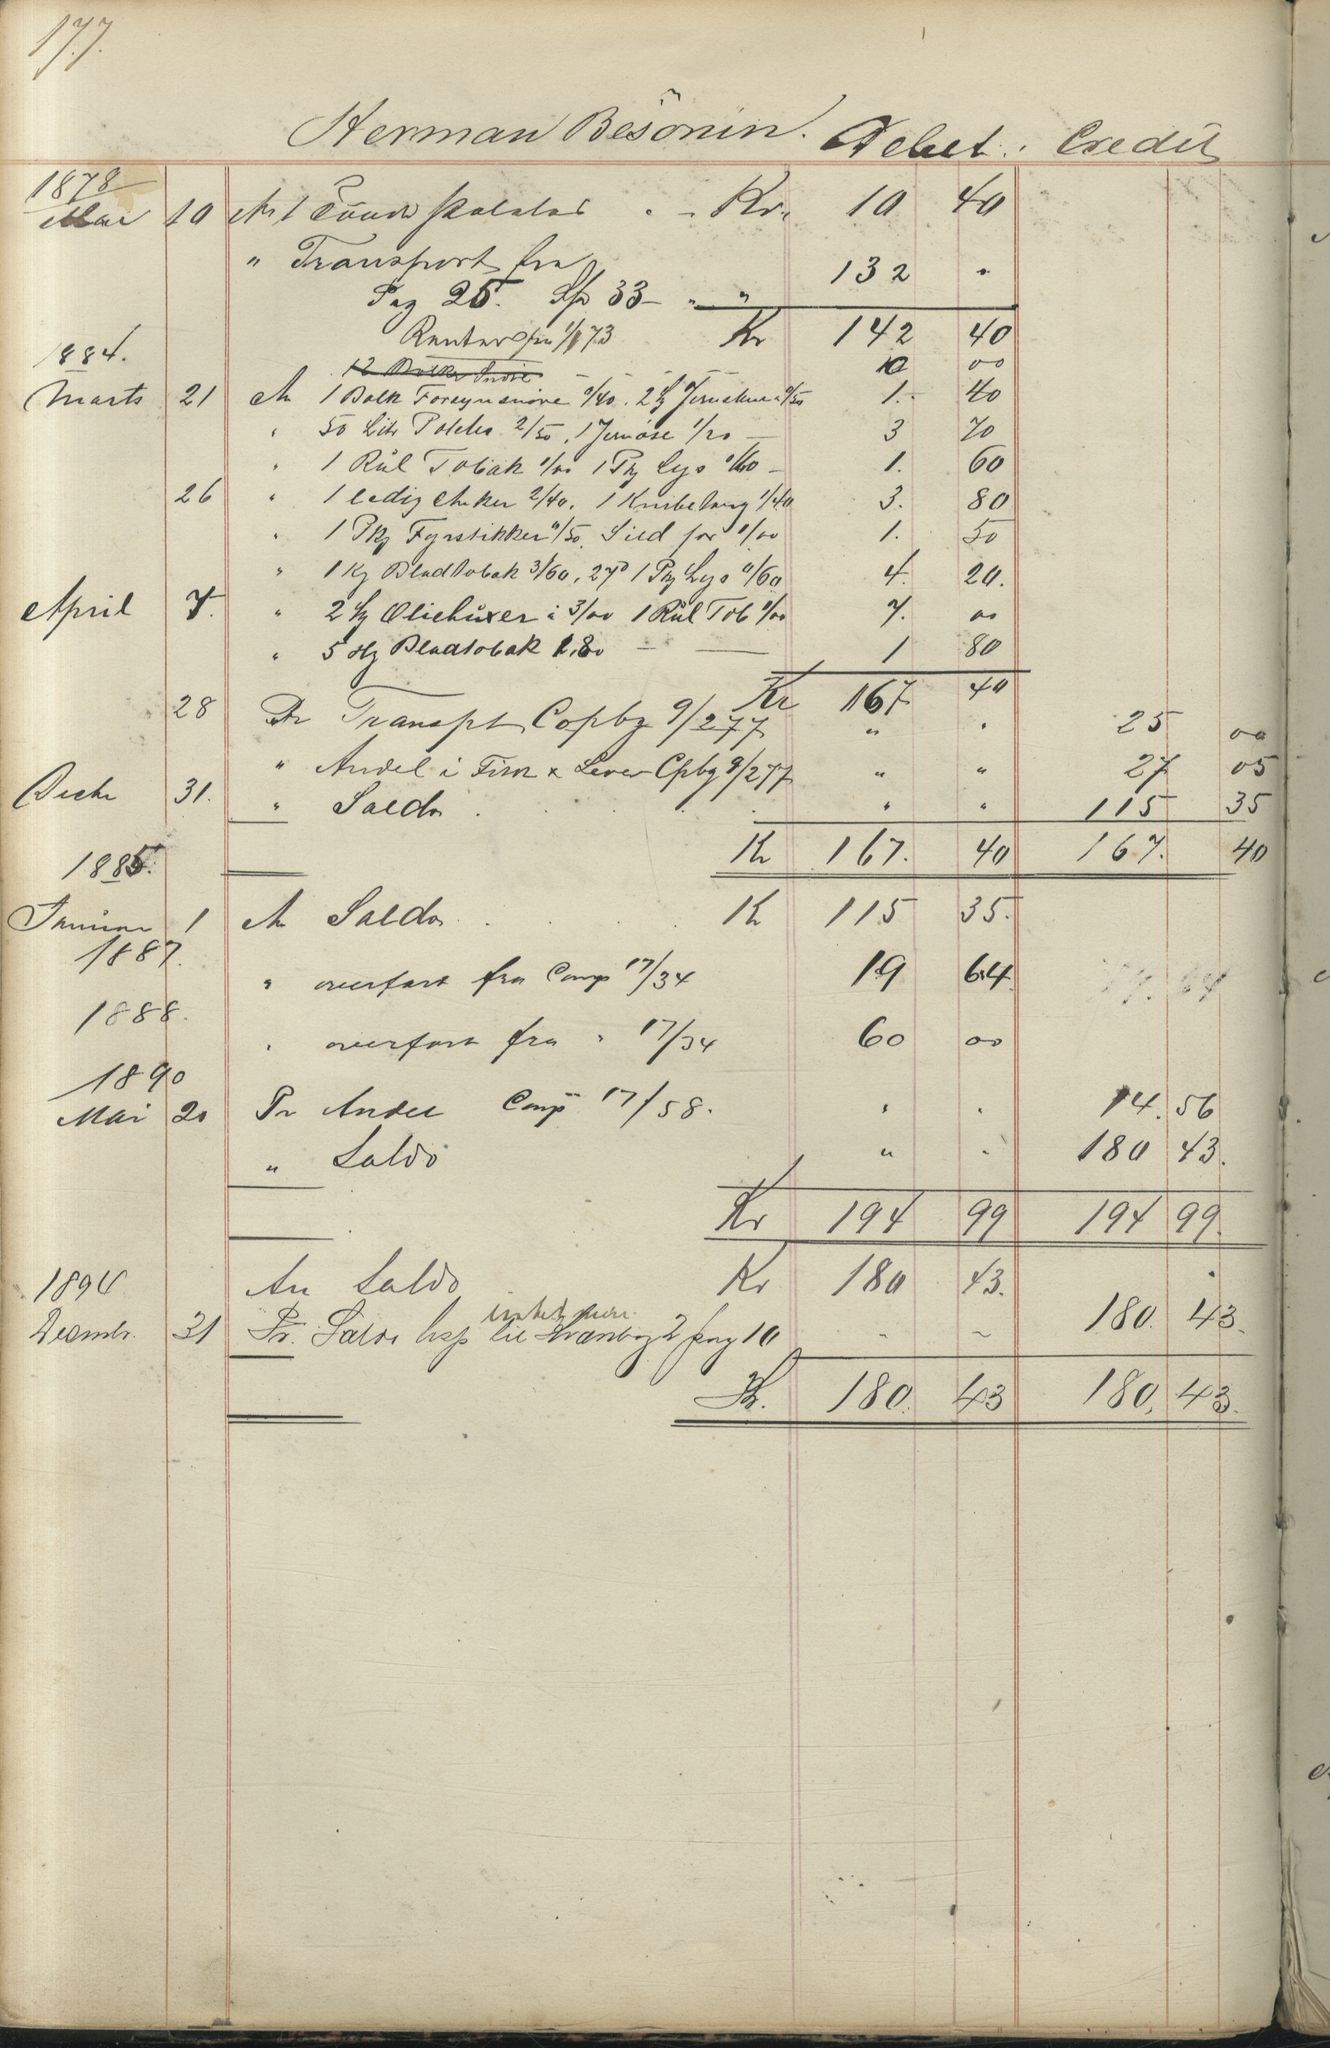 177.
Herman Besonin. Debet. Credit
1878
Mai 10 An 1 Tönde Kr. 10 40
" Transport fra
Pag 25. Sp 33 - " " 132 "
Renter fra 1/1 73 Kr 142 40
1884.
12 00
Marts 21 An 1 Bolk Forsynsnöre 0/40. 2 0/50 1.- 40
" 50 Lit 2/50, 1 1/20 - 3 70
" 1 Rúl Tobak 1/00 1 Pk Lys 0/60 - 1. 60
26 " 1 ledig Anker 2/40. 1 1/40 3. 80
" 1 Pk Fyrstikker 0/50. Sild for 1/00 1. 50
" 1 Kg Bladtobak 3/60, 1 Pk Lys 0/60 4. 20.
April 7. " 2 Oliebúxer à 3/00 1 Rúl Tob 1/00 7. 00
" 5 Hg Bladtobak 1.80 - — 1 80
Kr 167 40
28 Pr Transpt Copbg 9/277 " " 25 00
" Andel i Fisk & Lever Cpbg 9/277 " " 27 05
Decbr 31. " Saldo . . . . " " 115 35
Kr 167. 40 167. 40
1885.
Januar 1 An Saldo . . . Kr 115 35.
1887.
" overfört fra Comp 17/34 19 64
1888.
" overfört fra " 17/34 60 00
1890
Mai 20 Pr Andel Comp 17/58. " " 14. 56
" Saldo " " 180 43.
Kr 194 99 194 99.
An Saldo Kr 180 43.
1894
Decembr. 31 Pr. Saldo til 2 pag 10 " " 180. 43.
Kr. 180. 43 180. 43.